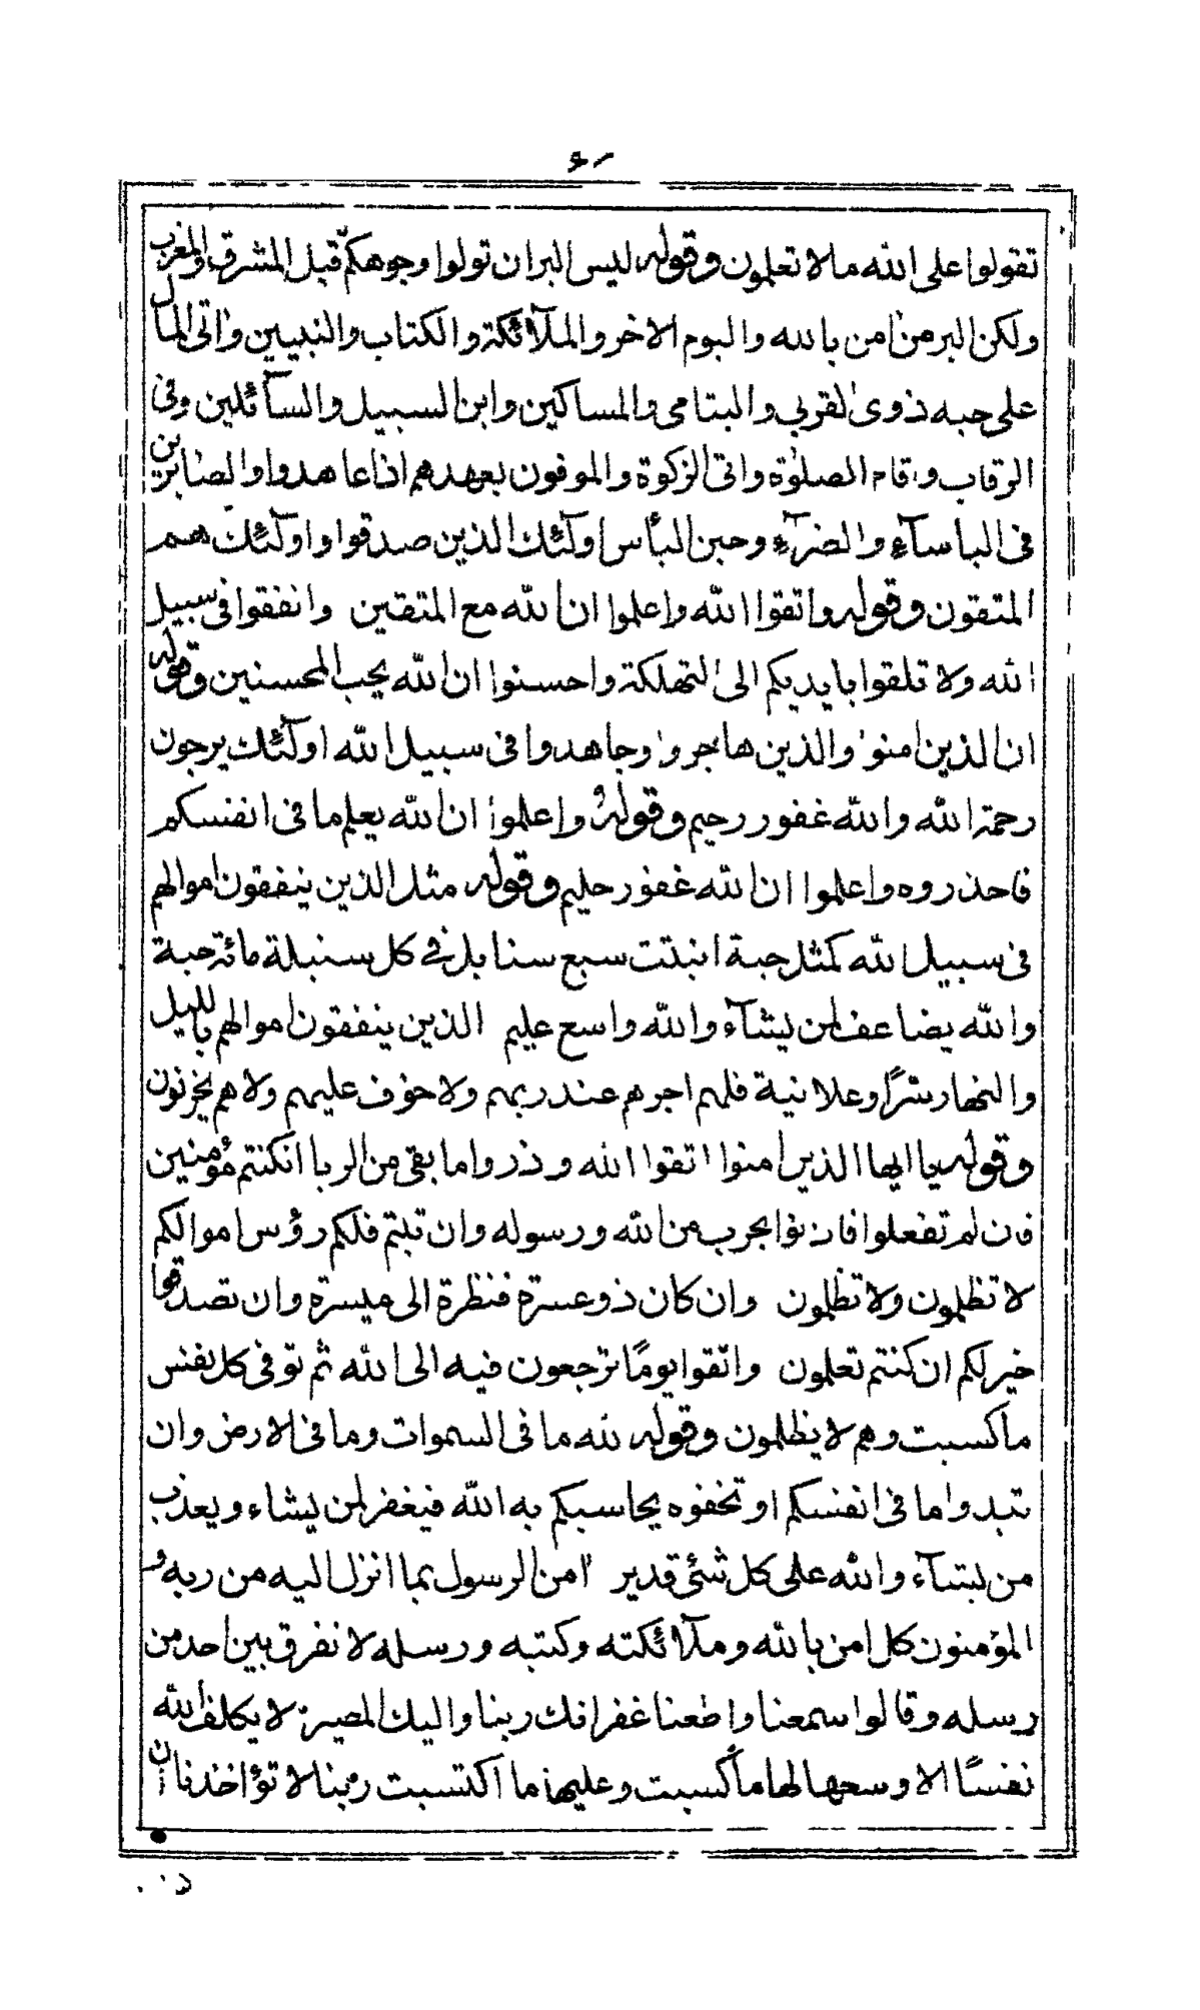 تقولوا على الله مالا تعلمون وقوله ليس البر ان تولوا وجوهكم قبل المشرق والمغرب
ولكن البر من امن بالله واليوم الاخر والملآئكة والكتاب والنبيين واتى المال
على حبه ذوى القربى واليتامى والمساكين وابن السبيل والسآئلين وفى
الرقاب واقام الصلوة واتى الزكوة والموفون بعهدهم اذا عاهدوا والصابرين
فى الباسآء والضرآء وحين البأس اولٓئك الذين صدقوا واولٓئك هم
المتقون وقوله واتقوا الله واعلموا ان الله مع المتقين وانفقوا فى سبيل
الله ولا تلقوا بايديكم الى التهلكة واحسنوا ان الله يحب المحسنين وقوله
ان الذين امنوا والذين هاجروا وجاهدوا فى سبيل الله اولٓئك يرجون
رحمة الله والله غفور رحيم وقوله واعلموا ان الله يعلم ما فى انفسكم
فاحذروه واعلموا ان الله غفور حليم وقوله مثل الذين ينفقون اموالهم
فى سبيل الله كمثل حبة انبتت سبع سنابل فى كل سنبلة مائة حبة
والله يضاعف لمن يشآء والله واسع عليم الذين ينفقون اموالهم بالليل
والنهار سرًا وعلانية فلهم اجرهم عند ربهم ولا خوف عليهم ولا هم يحزنون
وقوله يا ايها الذين امنوا اتقوا الله وذروا ما بقى من الربا انكنتم مؤمنين
فان لم تفعلوا فاذنوا بحرب من الله ورسوله وان تبتم فلكم رؤس اموالكم
لا تظلمون ولا تظلمون وان كان ذو عسرة فنظرة الى ميسرة وان تصدقوا
خير لكم ان كنتم تعلمون واتقوا يومًا ترجعون فيه الى الله ثم توفى كل نفس
ما كسبت وهم لا يظلمون وقوله لله ما فى السموات وما فى الارض وان
تبدوا ما فى انفسكم او تخفوه يحاسبكم به الله فيغفر لمن يشاء ويعذب
من يشآء والله على كل شئ قدير امن الرسول بما انزل اليه من ربه و
المؤمنون كل امن بالله وملآئكته وكتبه ورسله لا نفرق بين احد من
رسله وقالوا سمعنا واطعنا غفرانك ربنا واليك المصير لا يكلف الله
نفسًا الا وسعها لها ما كسبت وعليها ما اكتسبت ربنا لا تؤاخذنا ان